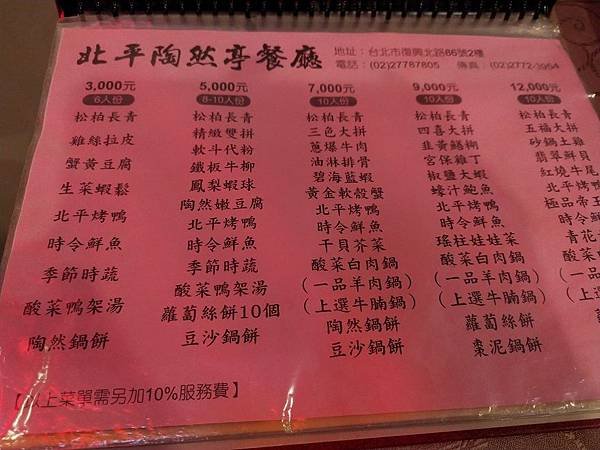 北平陶然亭餐廳
地址：台北市復興北路86號2樓
電話：(02)27787805 傳真：(02)2772-3954
3,000元
6人份
松柏長青
雞絲拉皮
蟹黃豆腐
生菜蝦鬆
北平烤鴨
時令鮮魚
季節時蔬
酸菜鴨架湯
陶然鍋餅
5,000元
8-10人份
松柏長青
精緻雙拼
軟斗代粉
鐵板牛柳
鳳梨蝦球
陶然嫩豆腐
北平烤鴨
時令鮮魚
季節時蔬
酸菜鴨架湯
蘿蔔絲餅10個
豆沙鍋餅
7,000元
10人份
松柏長青
三色大拼
蔥爆牛肉
油淋排骨
碧海藍蝦
黃金軟殼蟹
北平烤鴨
時令鮮魚
干貝芥菜
酸菜白肉鍋
(一品羊肉鍋)
(上選牛腩鍋)
陶然鍋餅
豆沙鍋餅
9,000元
10人份
松柏長青
四喜大拼
韭黃鱔糊
宮保雞丁
椒鹽大蝦
蠔汁鮑魚
北平烤鴨
時令鮮魚
瑤柱娃娃菜
酸菜白肉鍋
(一品羊肉鍋)
(上選牛腩鍋)
蘿蔔絲餅
棗泥鍋餅
12,000元
10人份
松柏長青
五福大拼
砂鍋土雞
翡翠鮮貝
紅燒牛尾
北平烤鴨
極品帝王
時令鮮魚
青花
酸菜白
(一品羊
(上選牛
蘿蔔
棗泥
【以上菜單需另加10%服務費】